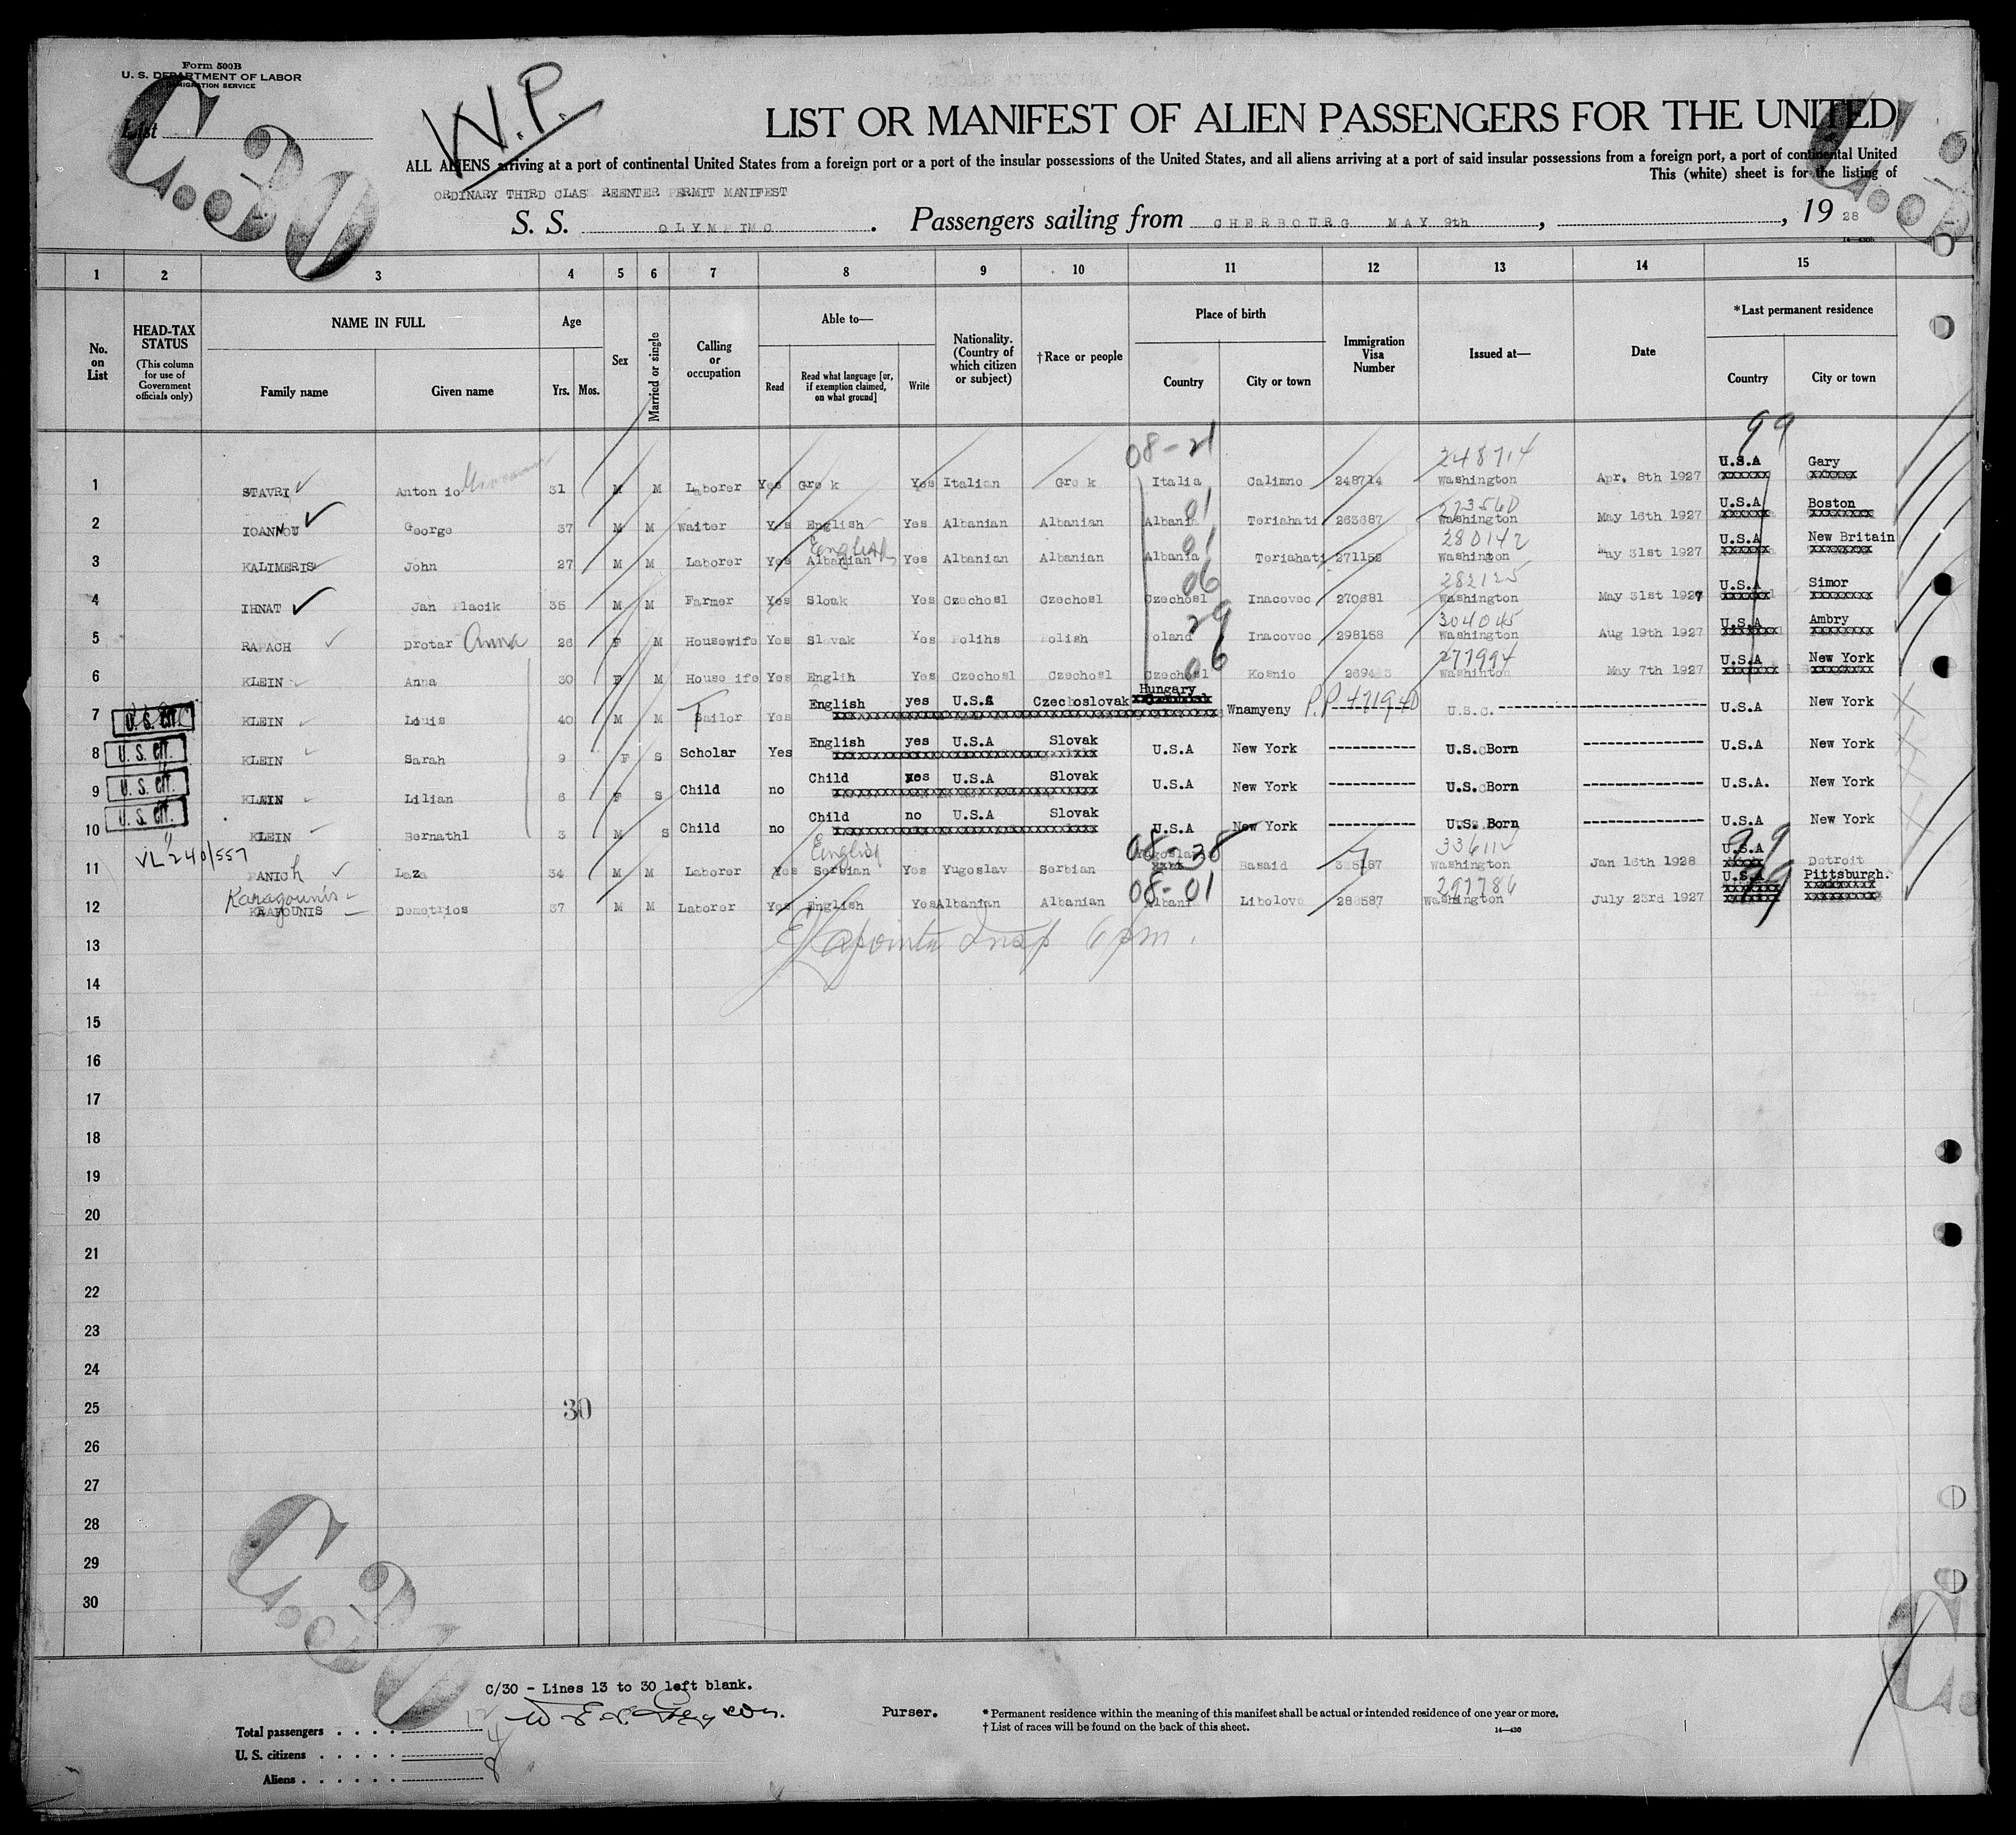 Form 500B
U. S. DEPARTMENT OF LABOR
IMMIGRATION SERVICE
List
C. 30
W.P.
LIST OR MANIFEST OF ALIEN PASSENGERS FOR THE UNITED
ALL ALIENS arriving at a port of continental United States from a foreign port or a port of the insular possessions of the United States, and all aliens arriving at a port of said insular possessions from a foreign port, a port of continental United
This (white) sheet is for the listing of
ORDINARY THIRD CLAS REENTER PERMIT MANIFEST
S. S. OLYMPIMC. Passengers sailing from CHERBOURG MAY 9th, , 19 28
1 2 3 4 5 6 7 8 9 10 11 12 13 14 15
No. on List
HEAD-TAX STATUS (This column for use of Government officials only)
NAME IN FULL Family name Given name
Age Yrs. Mos.
Sex
Married or single
Calling or occupation
Able to— Read Read what language [or, if exemption claimed, on what ground] Write
Nationality. (Country of which citizen or subject)
†Race or people
Place of birth Country City or town
Immigration Visa Number
Issued at—
Date
*Last permanent residence Country City or town
08-21 248714 99
1 STAVRI Antonio 31 M M Laborer Yes Gre k Yes Italian Gre k Italia Calimno 248714 Washington Apr. 8th 1927 U.S.A Gary
01 273560
2 IOANNOU George 37 M M Waiter Yes English Yes Albanian Albanian Albania Teriahati 263687 Washington May 16th 1927 U.S.A Boston
English 01 280142
3 KALIMERIS John 27 M M Laborer Yes Albanian Yes Albanian Albanian Albania Teriahati 271152 Washington May 31st 1927 U.S.A New Britain
06 282125
4 IHNAT Jan Placik 35 M M Farmer Yes Sloak Yes Czechosl Czechosl Czechosl Inacovec 270681 Washington May 31st 1927 U.S.A Simor
29 304045
5 RAPACH Drotar Anna 26 F M Housewife Yes Slovak Yes Polihs Polish Poland Inacovec 298158 Washington Aug 19th 1927 U.S.A Ambry
06 277994
6 KLEIN Anna 30 F M House ife Yes Englih Yes Czechosl Czechosl Czechosl Kosnio Washinton May 7th 1927 U.S.A New York
7 U. S. CIT. KLEIN Louis 40 M M Tailor Yes English yes U.S.A Czechoslovak Hungary Wnamyeny P.P 471940 U.S.C. U.S.A New York
8 U. S. CIT. KLEIN Sarah 9 F S Scholar Yes English yes U.S.A Slovak U.S.A New York U.S. Born U.S.A New York
9 U. S. CIT. KLEIN Lilian 6 F S Child no Child U.S.A Slovak U.S.A New York U.S. Born U.S.A. New York
10 U. S. CIT. KLEIN Bernathl 3 M S Child no Child no U.S.A Slovak U.S.A New York U.S. Born U.S.A New York
VL 240/557 English 08-38 336112 99
11 PANICh Laza 34 M M Laborer Yes Serbian Yes Yugoslav Serbian Yugoslav Basaid 325187 Washington Jan 16th 1928 U.S.A Detroit
Karagounis 08-01 297786 99
12 KRAPOUNIS Demetrios 37 M M Laborer Yes English Yes Albanian Albanian Albani Libolovo 283587 Washington July 23rd 1927 U.S.A Pittsburgh.
13 Insp 6 pm.
14
15
16
17
18
19
20
21
22
23
24
25 30
26
27
28
29
30
C. 30
C/30 - Lines 13 to 30 left blank.
Purser.
Total passengers 12
U. S. citizens 4
Aliens 8
* Permanent residence within the meaning of this manifest shall be actual or intended residence of one year or more.
† List of races will be found on the back of this sheet.
14—430